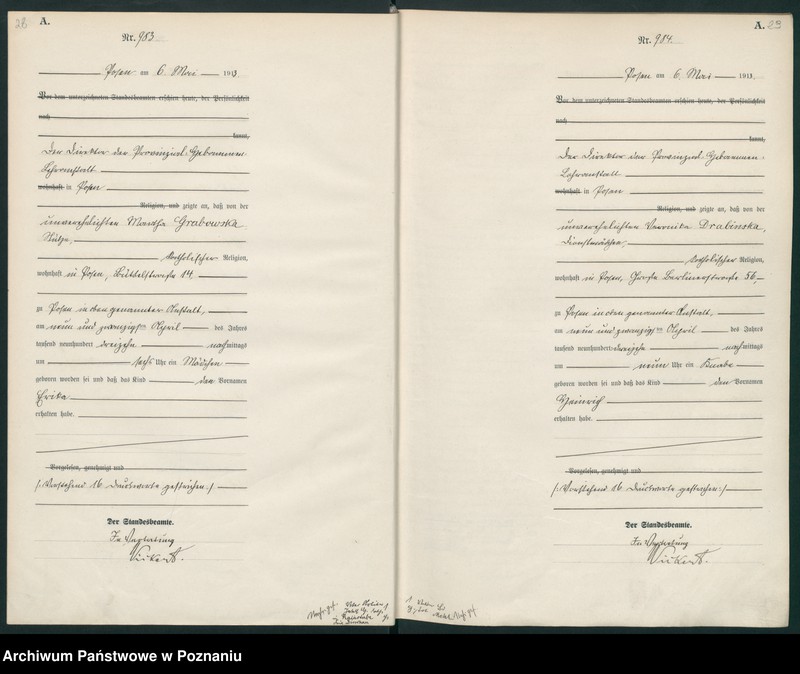 28
A.
Nr. 983
Posen am 6. Mai 1913.
Vor dem unterzeichneten Standesbeamten erschien heute, der Persönlichkeit
nach
kannt,
Der Direktor der Provinzial-Hebammen-
Lehranstalt
wohnhaft in Posen
Religion, und zeigte an, daß von der
unverehelichten Martha Grabowska
Stütze,
katholischer Religion,
wohnhaft in Posen, 14
zu Posen in oben genannter Anstalt,
am neun und zwanzigsten April des Jahres
tausend neunhundert dreizehn nachmittags
um sechs Uhr ein Mädchen
geboren worden sei und daß das Kind den Vornamen
Erika
erhalten habe.
Vorgelesen, genehmigt und
/: Vorstehend 16 Druckworte gestrichen :/
Der Standesbeamte.
In Vertretung
A. 29
Nr. 984.
Posen am 6. Mai 1913.
Vor dem unterzeichneten Standesbeamten erschien heute, der Persönlichkeit
nach
kannt,
Der Direktor der Provinzial-Hebammen-
Lehranstalt
wohnhaft in Posen
Religion, und zeigte an, daß von der
unverehelichten Veronika Drabinska,
Dienstmädchen,
katholischer Religion,
wohnhaft in Posen, Große Berlinerstraße 56,
zu Posen in oben genannter Anstalt,
am neun und zwanzigsten April des Jahres
tausend neunhundert dreizehn nachmittags
um neun Uhr ein Knabe
geboren worden sei und daß das Kind den Vornamen
Heinrich
erhalten habe.
Vorgelesen, genehmigt und
/: Vorstehend 16 Druckworte gestrichen :/
Der Standesbeamte.
In Vertretung
Archiwum Państwowe w Poznaniu